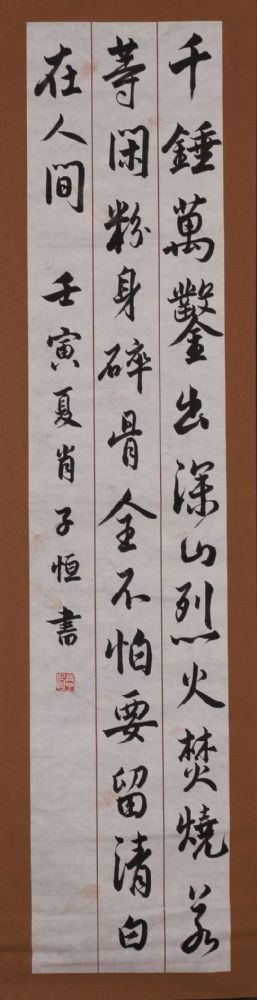 千錘萬鑿出深山烈火焚燒若
等閑粉身碎骨全不怕要留清白
在人間 壬寅夏肖子恒書